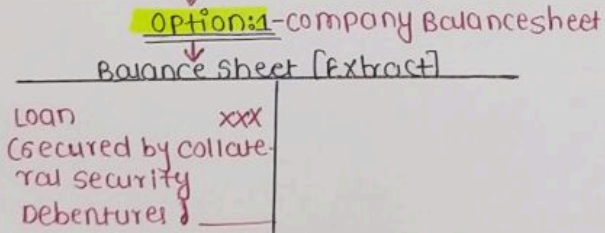 option:1-company Balancesheet
Balance Sheet [Extract]
Loan xxx
(secured by collate-
ral security
Debentures)